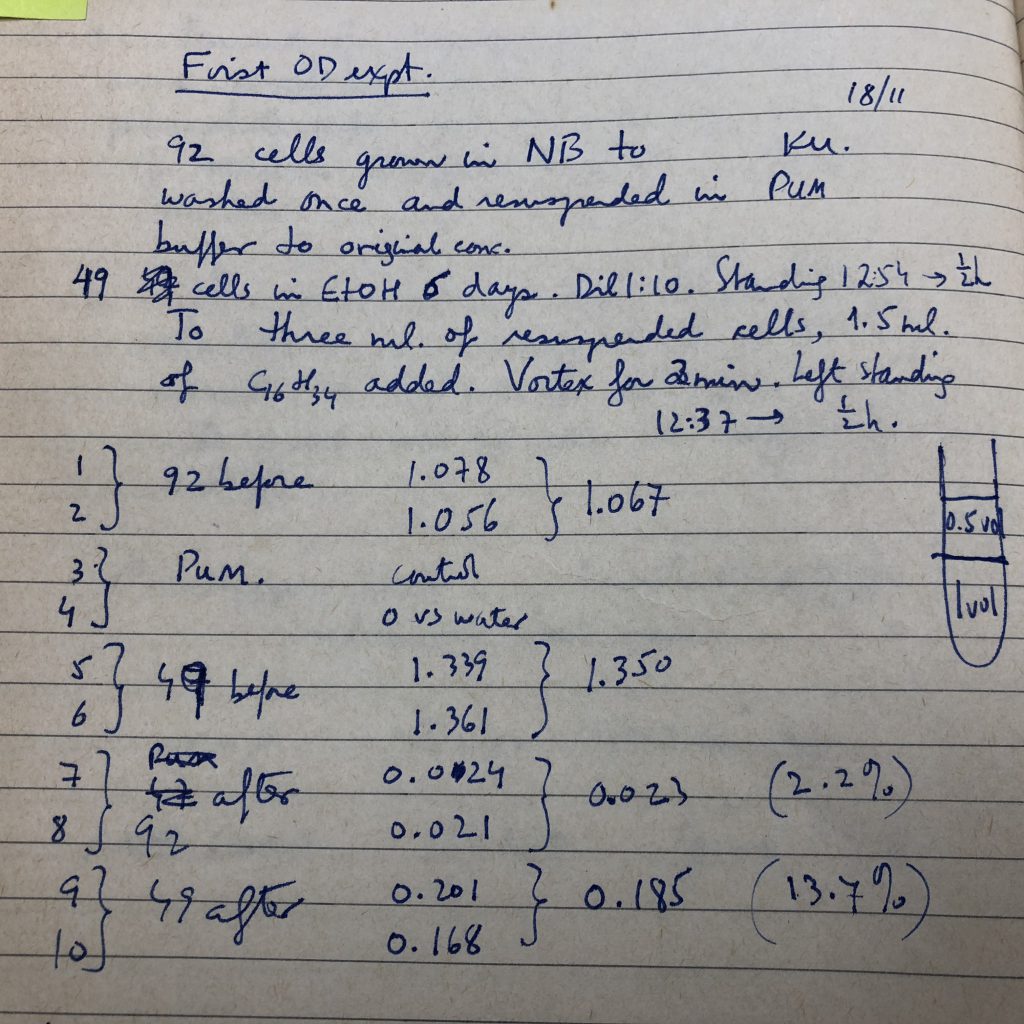 First OD expt.
18/11
92 cells grown in NB to Ku.
washed once and resuspended in PUM
buffer to original conc.
49 cells in EtOH 6 days. Dil 1:10. Standing 12:54 → ½h
To three ml. of resuspended cells, 1.5 ml.
of C16H34 added. Vortex for 2 min. Left standing
12:37 → ½h.
1
2 } 92 before 1.078
1.056 } 1.067
3
4 } PUM. control
0 vs water
0.5 vol
1 vol
5
6 } 49 before 1.339
1.361 } 1.350
7
8 } after 0.024
92 0.021 } 0.023 (2.2%)
9
10 } 49 after 0.201
0.168 } 0.185 (13.7%)